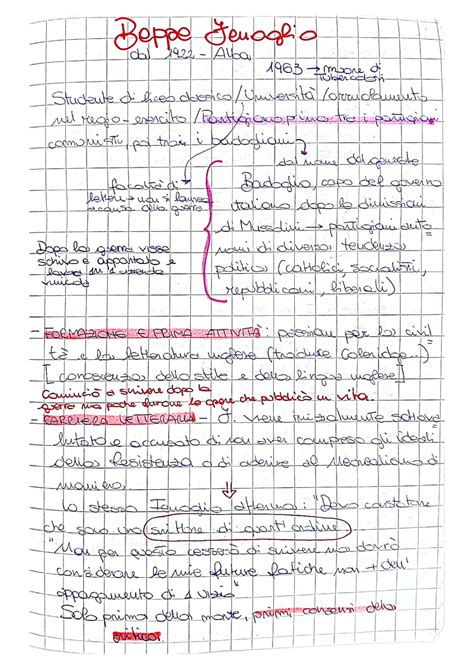 Beppe Fenoglio
dal 1922 - Alba
1963 → muore di
tubercolosi
Studente di liceo classico / Università / arruolamento
nel regio-esercito / Partigiano prima tra i partigiani
comunisti, poi tra i badogliani
dal nome del generale
facoltà di
lettere → non si laurea
a causa della guerra
Badoglio, capo del governo
italiano dopo le dimissioni
di Mussolini → partigiani auto
nomi di diverse tendenze
politico (cattolici, socialisti,
repubblicani, liberali)
Dopo la guerra visse
schivo e appartato e
lavora in 1 azienda
vinicola
- FORMAZIONE E PRIMA ATTIVITÀ: passione per la civil
tà e la letteratura inglese (traduce Coleridge...)
[conoscenza dello stile e della lingua inglese]
Cominciò a scrivere dopo la
guerra ma poche furono le opere che pubblicò in vita.
- CARRIERA LETTERARIA - F. viene inizialmente sotto
lutato e accusato di non aver compreso gli ideali
della Resistenza o di aderire al Neorealismo di
maniera.
Lo stesso Fenoglio afferma: "Devo constatare
che sono uno scrittore di quart'ordine
"Non per questo cesserò di scrivere ma dovrò
considerare le mie future fatiche non + dell'
appagamento di 1 vizio"
Solo prima della morte, primi consensi della
critica.